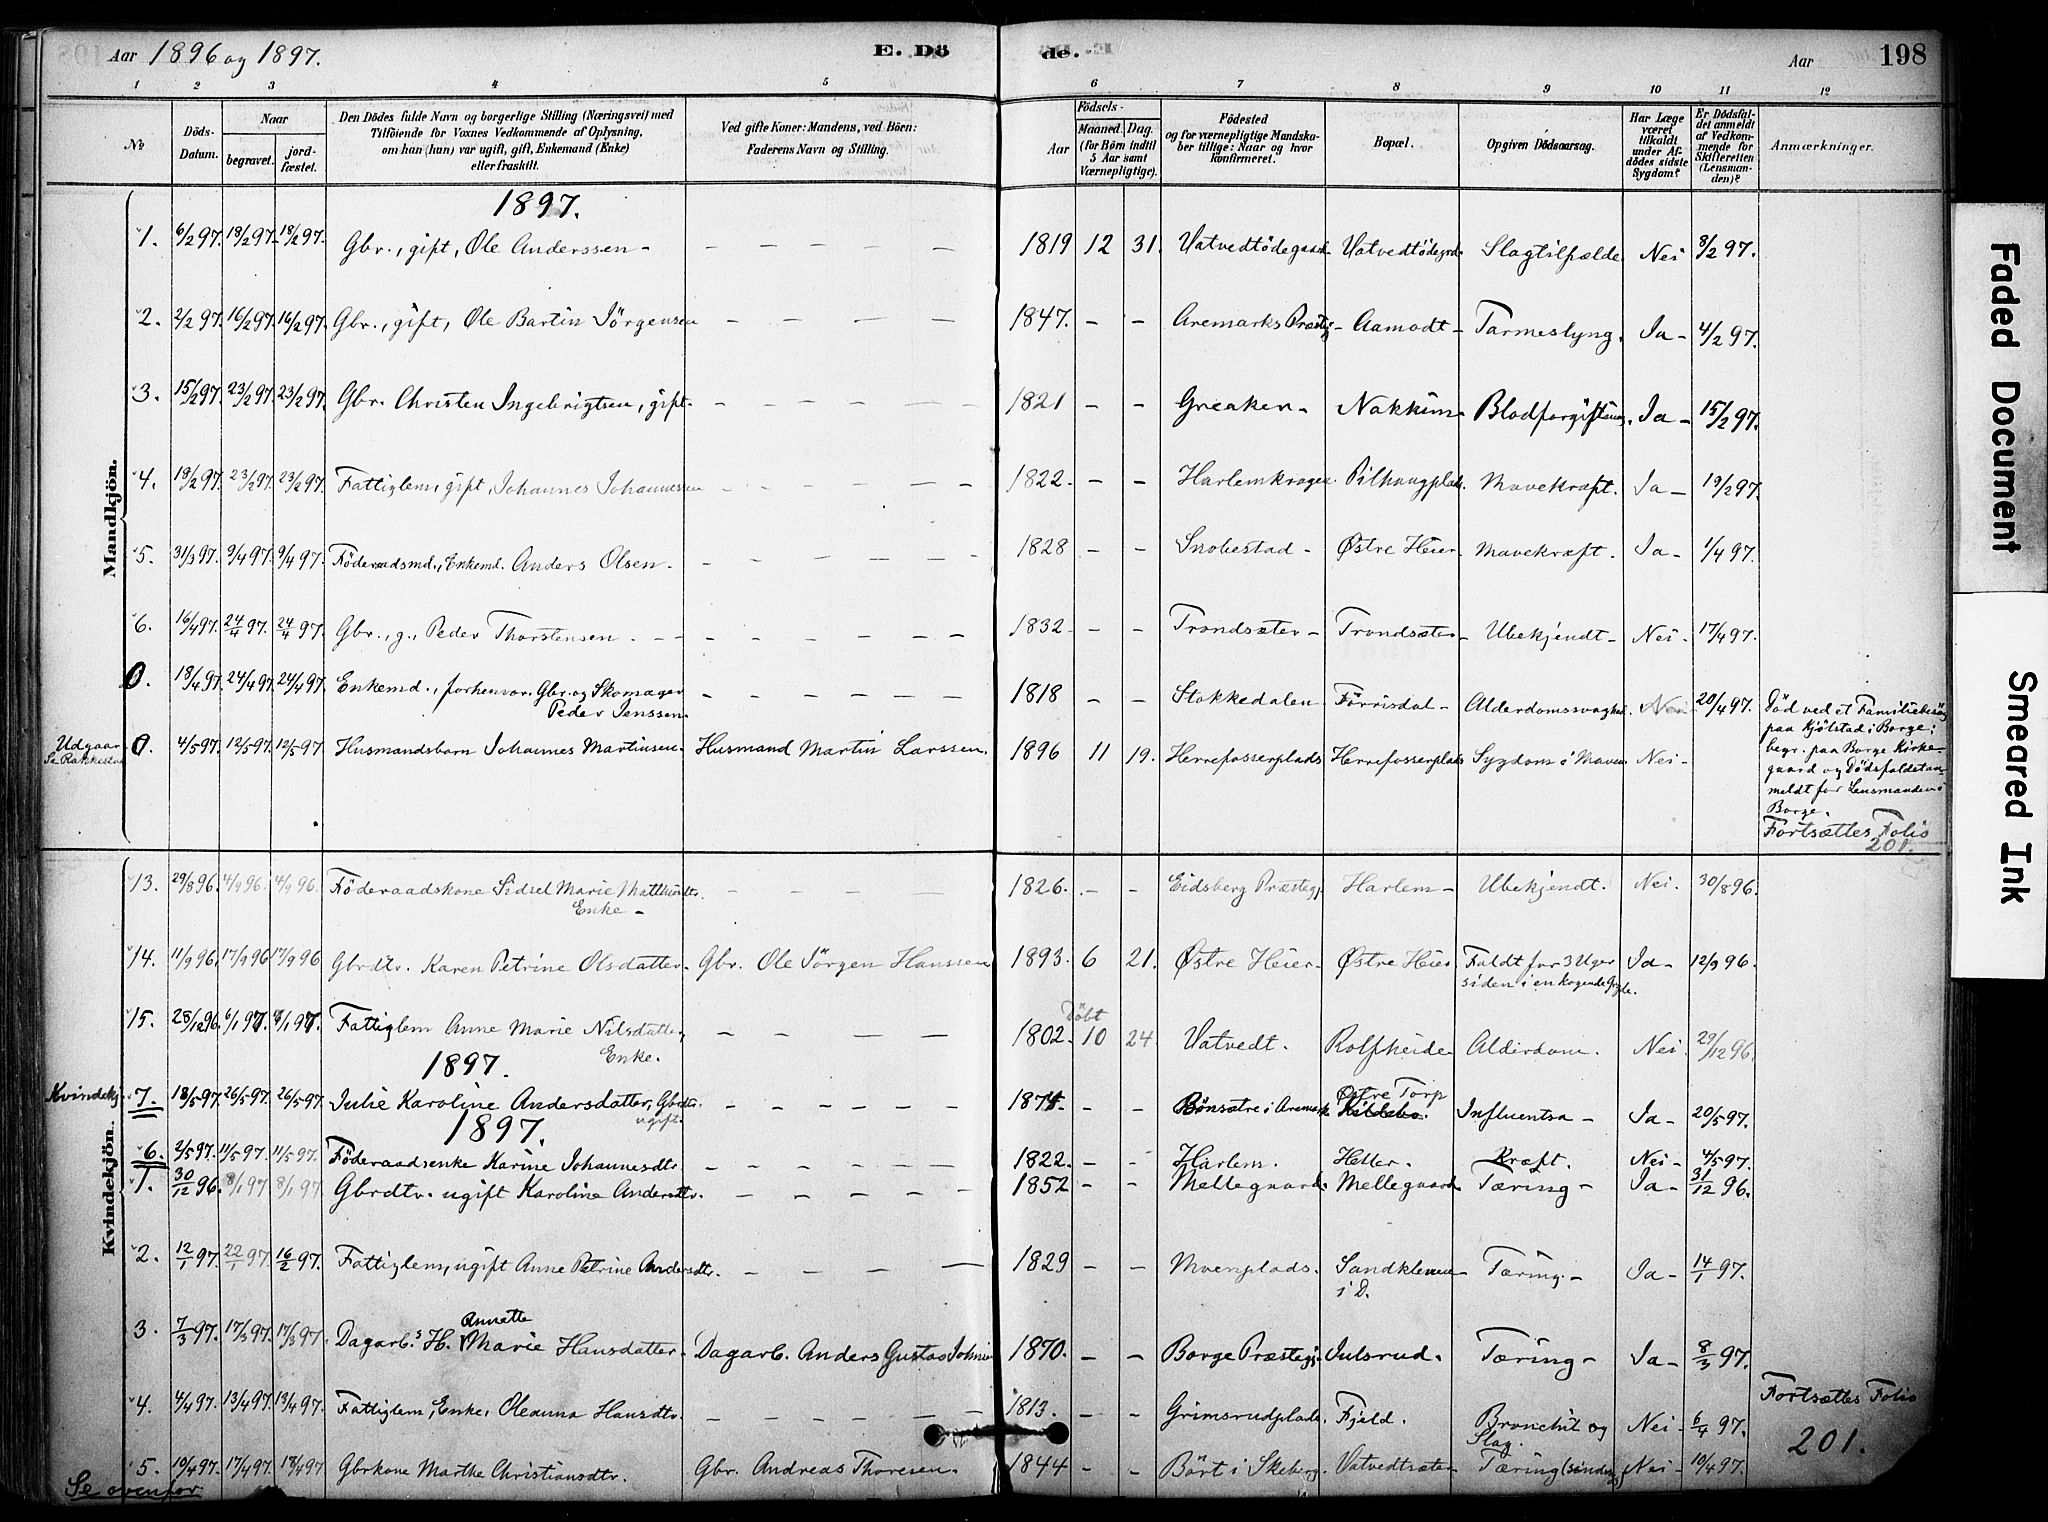 Aar 1896 og 1897. E. Dö de. Aar 198
1 2 3 4 5 6 7 8 9 10 11 12
№ Döds-Datum. Naar begravet. jordfæstet. Den Dödes fulde Navn og borgerlige Stilling (Næringsvei) med Tilföiende for Voxnes Vedkommende af Oplysning, om han (hun) var ugift, gift, Enkemand (Enke) eller fraskilt. Ved gifte Koner: Mandens, ved Börn: Faderens Navn og Stilling. Födsels- Aar Maaned. Dag. (for Börn indtil 5 Aar samt Værnepligtige). Födested og for værnepligtige Mandskaber tillige: Naar og hvor konfirmeret. Bopæl. Opgiven Dödsaarsag. Har Læge været tilkaldt under Afdödes sidste Sygdom? Er Dödsfaldet anmeldt af Vedkommende for Skifteretten (Lensmanden)? Anmærkninger.
Mandkjön.
1897.
1. 6/2 97. 18/2 97. 18/2 97. Gbr., gift, Ole Anderssen - 1819 12 31. Vatvedtödegaard. Vatvedtödegrd. Slagtilfælde. Nei 8/2 97.
2. 2/2 97. 16/2 97. 16/2 97. Gbr., gift, Ole Bartin Jörgensen 1847. - - Aremarks Præstgj - Aamodt - Tarmeslyng. Ja - 4/2 97.
3. 15/2 97. 23/2 97. 23/2 97. Gbr. Christen Ingebrigtsen, gift. 1821 - - Greaken - Nakkim - Blodforgiftning. Ja - 15/2 97.
4. 19/2 97. 23/2 97. 23/2 97. Fattiglem, gift, Johannes Johannessen 1822. - - Harlemkragen. Pilhaugplads. Mavekræft. Ja - 19/2 97.
5. 31/3 97. 9/4 97. 9/4 97. Föderaadsmd., Enkemd. Anders Olsen - 1828 - - Snobestad - Østre Heier - Mavekræft. Ja - 1/4 97.
6. 16/4 97. 24/4 97. 24/4 97. Gbr., g., Peder Thorstensen - 1832 - - Trondsæter - Trondsæter - Ubekjendt - Nei - 17/4 97.
0. 18/4 97. 24/4 97. 24/4 97. Enkemd., forhenvær. Gbr. og Skomager Peder Jenssen. 1818 - - Stokkedalen. Förrisdal - Alderdomssvaghed. Nei 20/4 97. Död ved et Familiebesög paa Kjölstad i Borge; begr. paa Borge Kirkegaard og Dödsfaldet anmeldt for Lensmanden i Borge.
Udgaar Se Rakkestad 0. 4/5 97. 12/5 97. 12/5 97. Husmandsbarn Johannes Martinsen - Husmand Martin Larssen. 1896 11 19. Herrefosserplads Herrefosserplads Sygdom i Maven Nei -
Fortsættes Folio 201.
Kvindekjön.
13. 29/8 96. 4/9 96. 4/9 96. Föderaadskone Sidsel Marie Matthiisdtr. Enke - 1826. - - Eidsberg Præstegj. Harlem - Ubekjendt. Nei. 30/8 96.
14. 11/9 96. 17/9 96 17/9 96 Gbrdtr. Karen Petrine Olsdatter - Gbr. Ole Jörgen Hanssen 1893. 6 21. Østre Heier - Østre Heier Faldt for 3 Uger siden i en kogende Gryde. Ja - 12/9 96.
15. 28/12 96. 6/1 97. 6/1 97. Fattiglem Anne Marie Nilsdatter, Enke. 1802. Döbt 10 24. Vatvedt. Rolfheide Alderdom. Nei. 29/12 96.
1897.
Kvindekj. 7. 18/5 97. 26/5 97. 26/5 97. Julie Karoline Andersdatter, Gbrdtr. ugift. 1874. - - Bönsætre i Aremark Østre Torp Kildebo. Influentsa - Ja - 20/5 97.
1897.
6. 2/5 97. 11/5 97 11/5 97. Föderaadsenke Karine Johannesdtr. 1822. - - Harlem. Heller. Kræft. Nei - 4/5 97.
1. 30/12 96. 8/1 97 8/1 97. Gbrdtr. ugift Karoline Andersdtr. 1852 - - Mellegaard. Mellegaard. Tæring - Ja - 31/12 96.
2. 12/1 97. 22/1 97. 16/2 97. Fattiglem, ugift Anne Petrine Andersdtr. 1829 - - Moenplads. Sandkleven i D. Tæring - Ja - 14/1 97.
3. 7/3 97. 17/3 97. 17/3 97. Dagarb.s H. Annette Marie Hansdatter. Dagarb. Anders Gustav Johns 1870. - - Borge Præstegj. Julsrud. Tæring - Ja - 8/3 97.
4. 4/4 97. 13/4 97. 13/4 97. Fattiglem, Enke, Oleanna Hansdtr. 1813. - - Grimsrudplads. Fjeld. Bronchit og Slag. Nei - 6/4 97. Fortsættes Folio 201.
5. 10/4 97. 17/4 97. 18/4 97 Gbrkone Marthe Christiansdtr. Gbr. Andreas Thoresen. 1844 - - Bört i Skeberg. Vatvedtsæter Tæring Nei - 10/4 97.
Se ovenfor
Faded Document
Smeared Ink